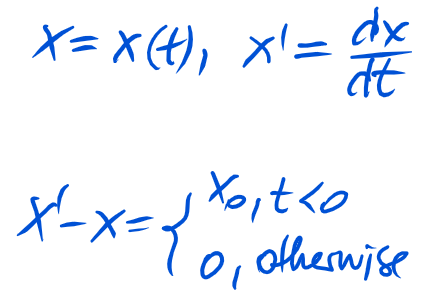 x = x(t), x' = dx/dt
x' - x = { x₀, t < 0
0, otherwise